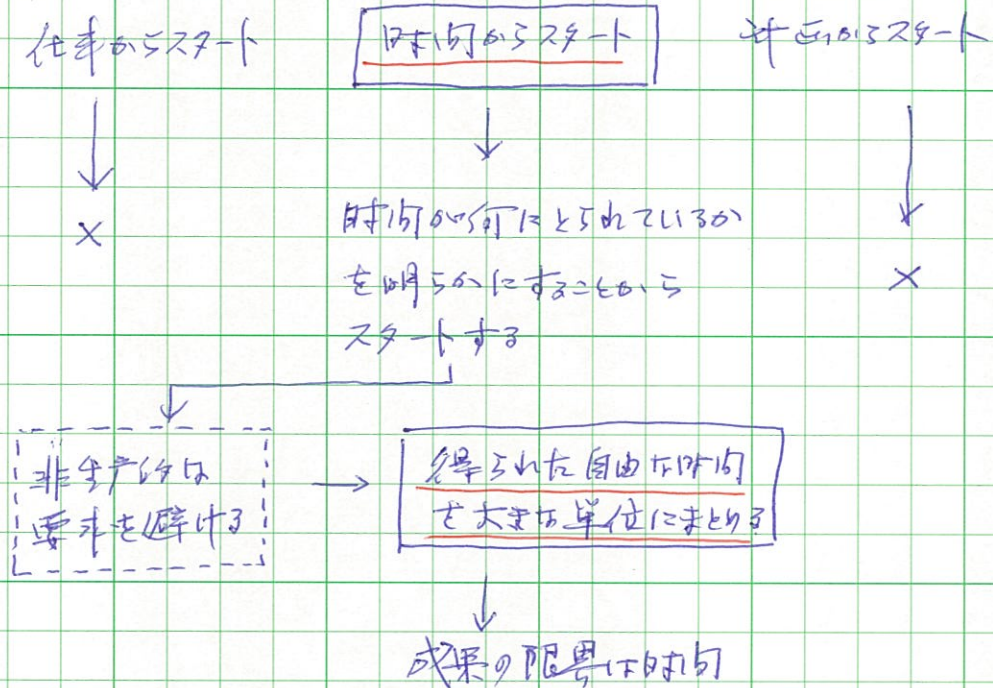 仕事からスタート
時間からスタート
計画からスタート
×
時間が何にとられているか
を明らかにすることから
×
スタートする
非生産的な
要求を避ける
得られた自由な時間
を大きな単位にまとめる
成果の限界は時間